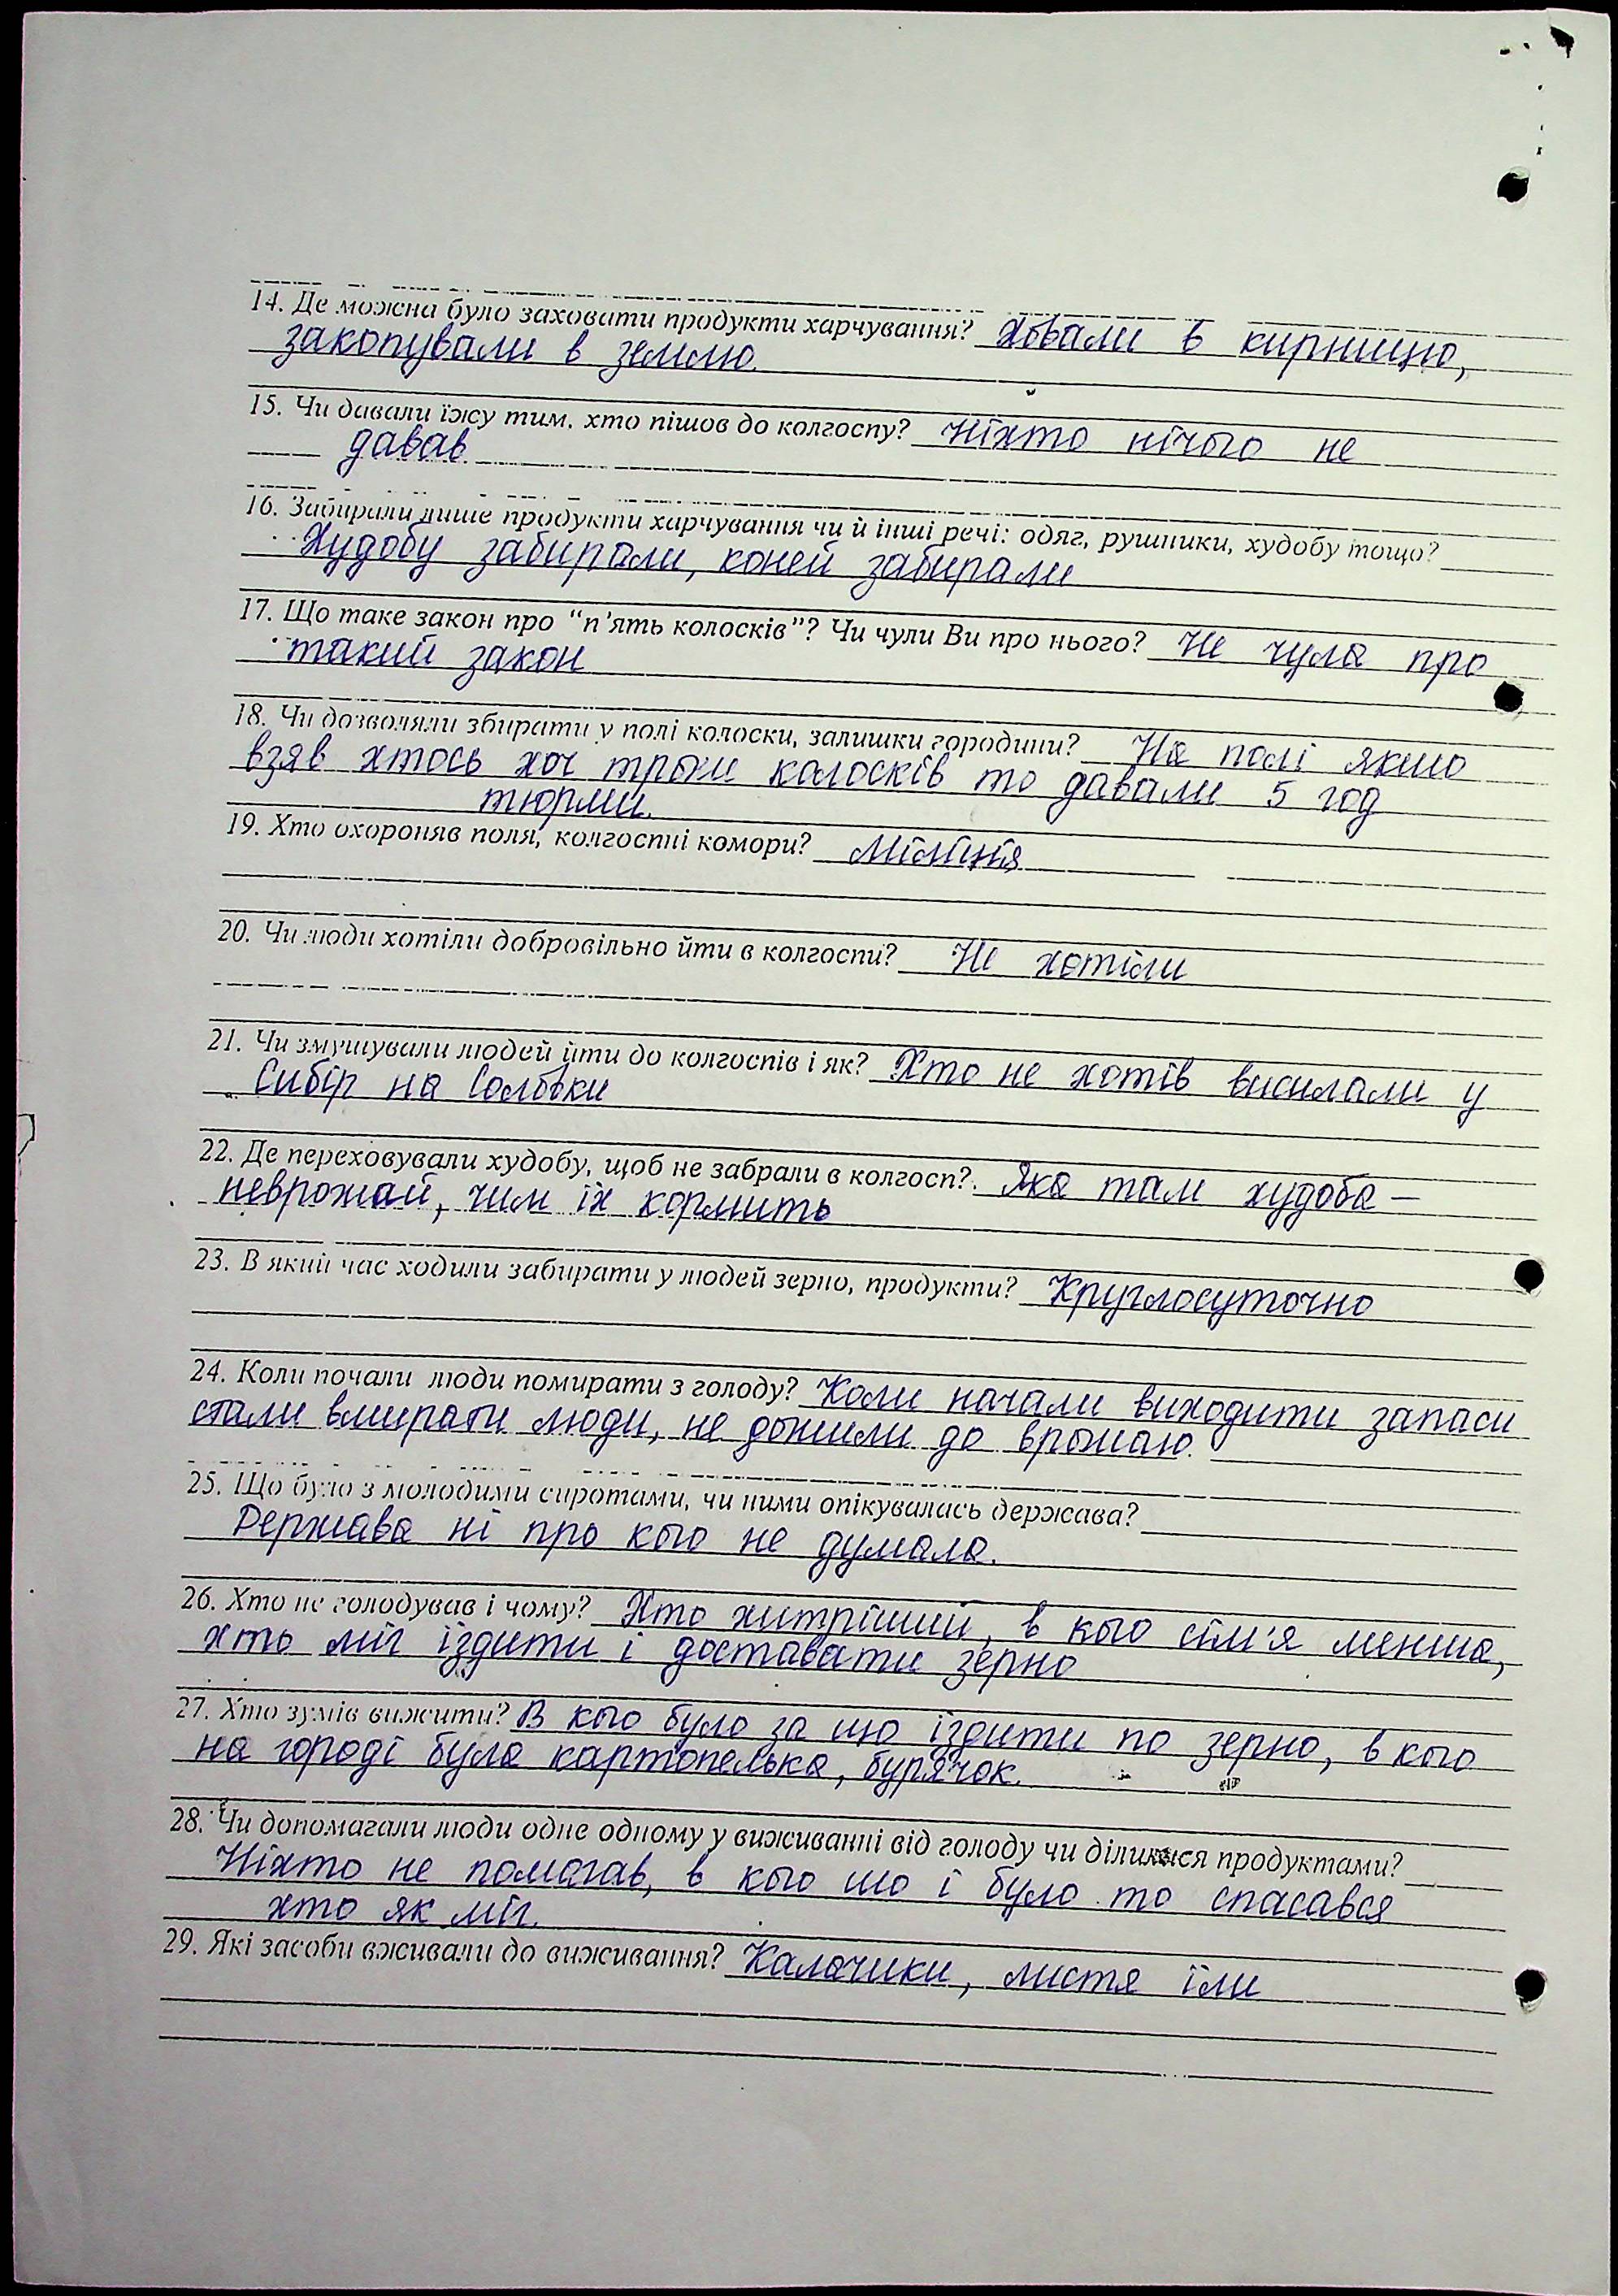 14. Де можна було заховати продукти харчування? Ховали в кирницю,
закопували в землю.
15. Чи давали їжу тим, хто пішов до колгоспу? Ніхто нічого не
давав
16. Забирали лише продукти харчування чи й інші речі: одяг, рушники, худобу тощо?
Худобу забирали, коней забирали
17. Що таке закон про "п'ять колосків"? Чи чули Ви про нього? Не чула про
такий закон
18. Чи дозволяли збирати у полі колоски, залишки городини? На полі якшо
взяв хтось хоч трохи колосків то давали 5 год
тюрми.
19. Хто охороняв поля, колгоспні комори? Міліція
20. Чи люди хотіли добровільно йти в колгоспи? Не хотіли
21. Чи змушували людей йти до колгоспів і як? Хто не хотів висилали у
Сибір на Соловки
22. Де переховували худобу, щоб не забрали в колгосп?. Яка там худоба –
неврожай, чим їх кормить
23. В який час ходили забирати у людей зерно, продукти? Круглосуточно
24. Коли почали люди помирати з голоду? Коли начали виходити запаси
стали вмирати люди, не дожили до врожаю.
25. Що було з молодими сиротами, чи ними опікувалась держава?
Держава ні про кого не думала.
26. Хто не голодував і чому? Хто хитріший, в кого сім'я менша,
хто міг їздити і доставати зерно
27. Хто зумів вижити? В кого було за що їздити по зерно, в кого
на городі була картопелька, бурячок.
28. Чи допомагали люди одне одному у виживанні від голоду чи ділилися продуктами?
Ніхто не помагав, в кого шо і було то спасався
хто як міг.
29. Які засоби вживали до виживання? Калачики, листя їли